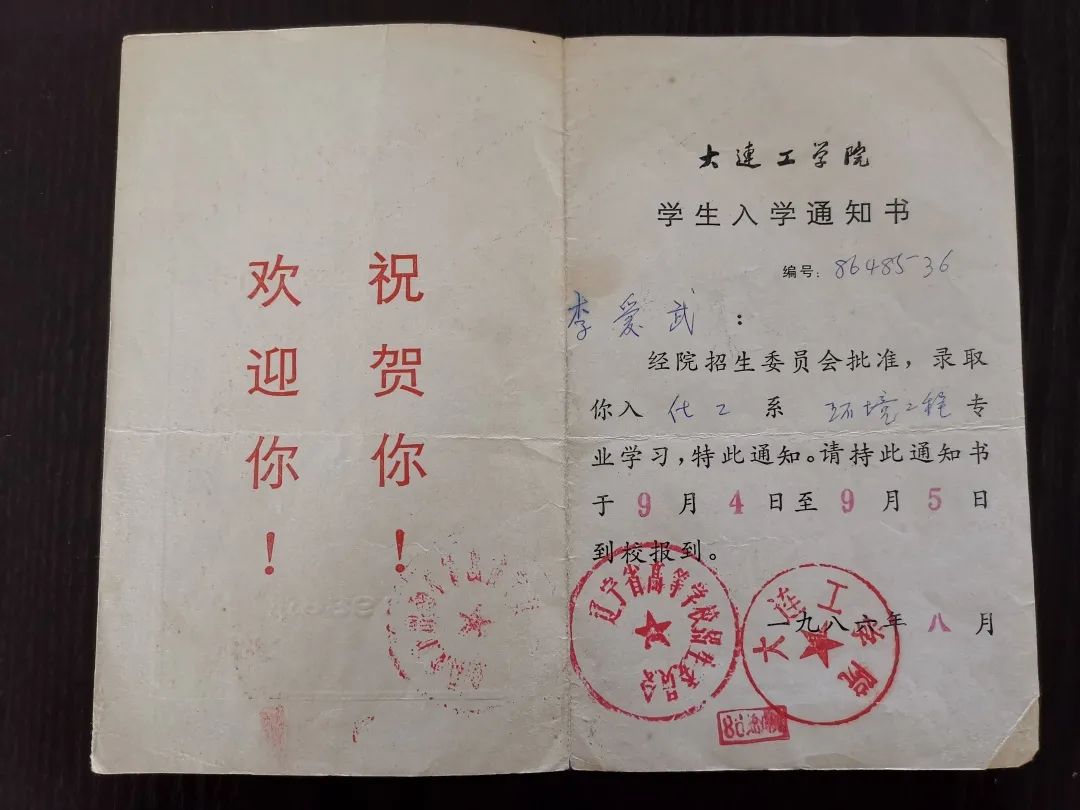 祝贺你！
欢迎你！
大連工学院
学生入学通知书
编号：8648536
李爱武：
经院招生委员会批准，录取
你入化工系环境工程专
业学习，特此通知。请持此通知书
于9月4日至9月5日
到校报到。
一九八六年八月
辽宁省高等学校招生委员会
大连工学院